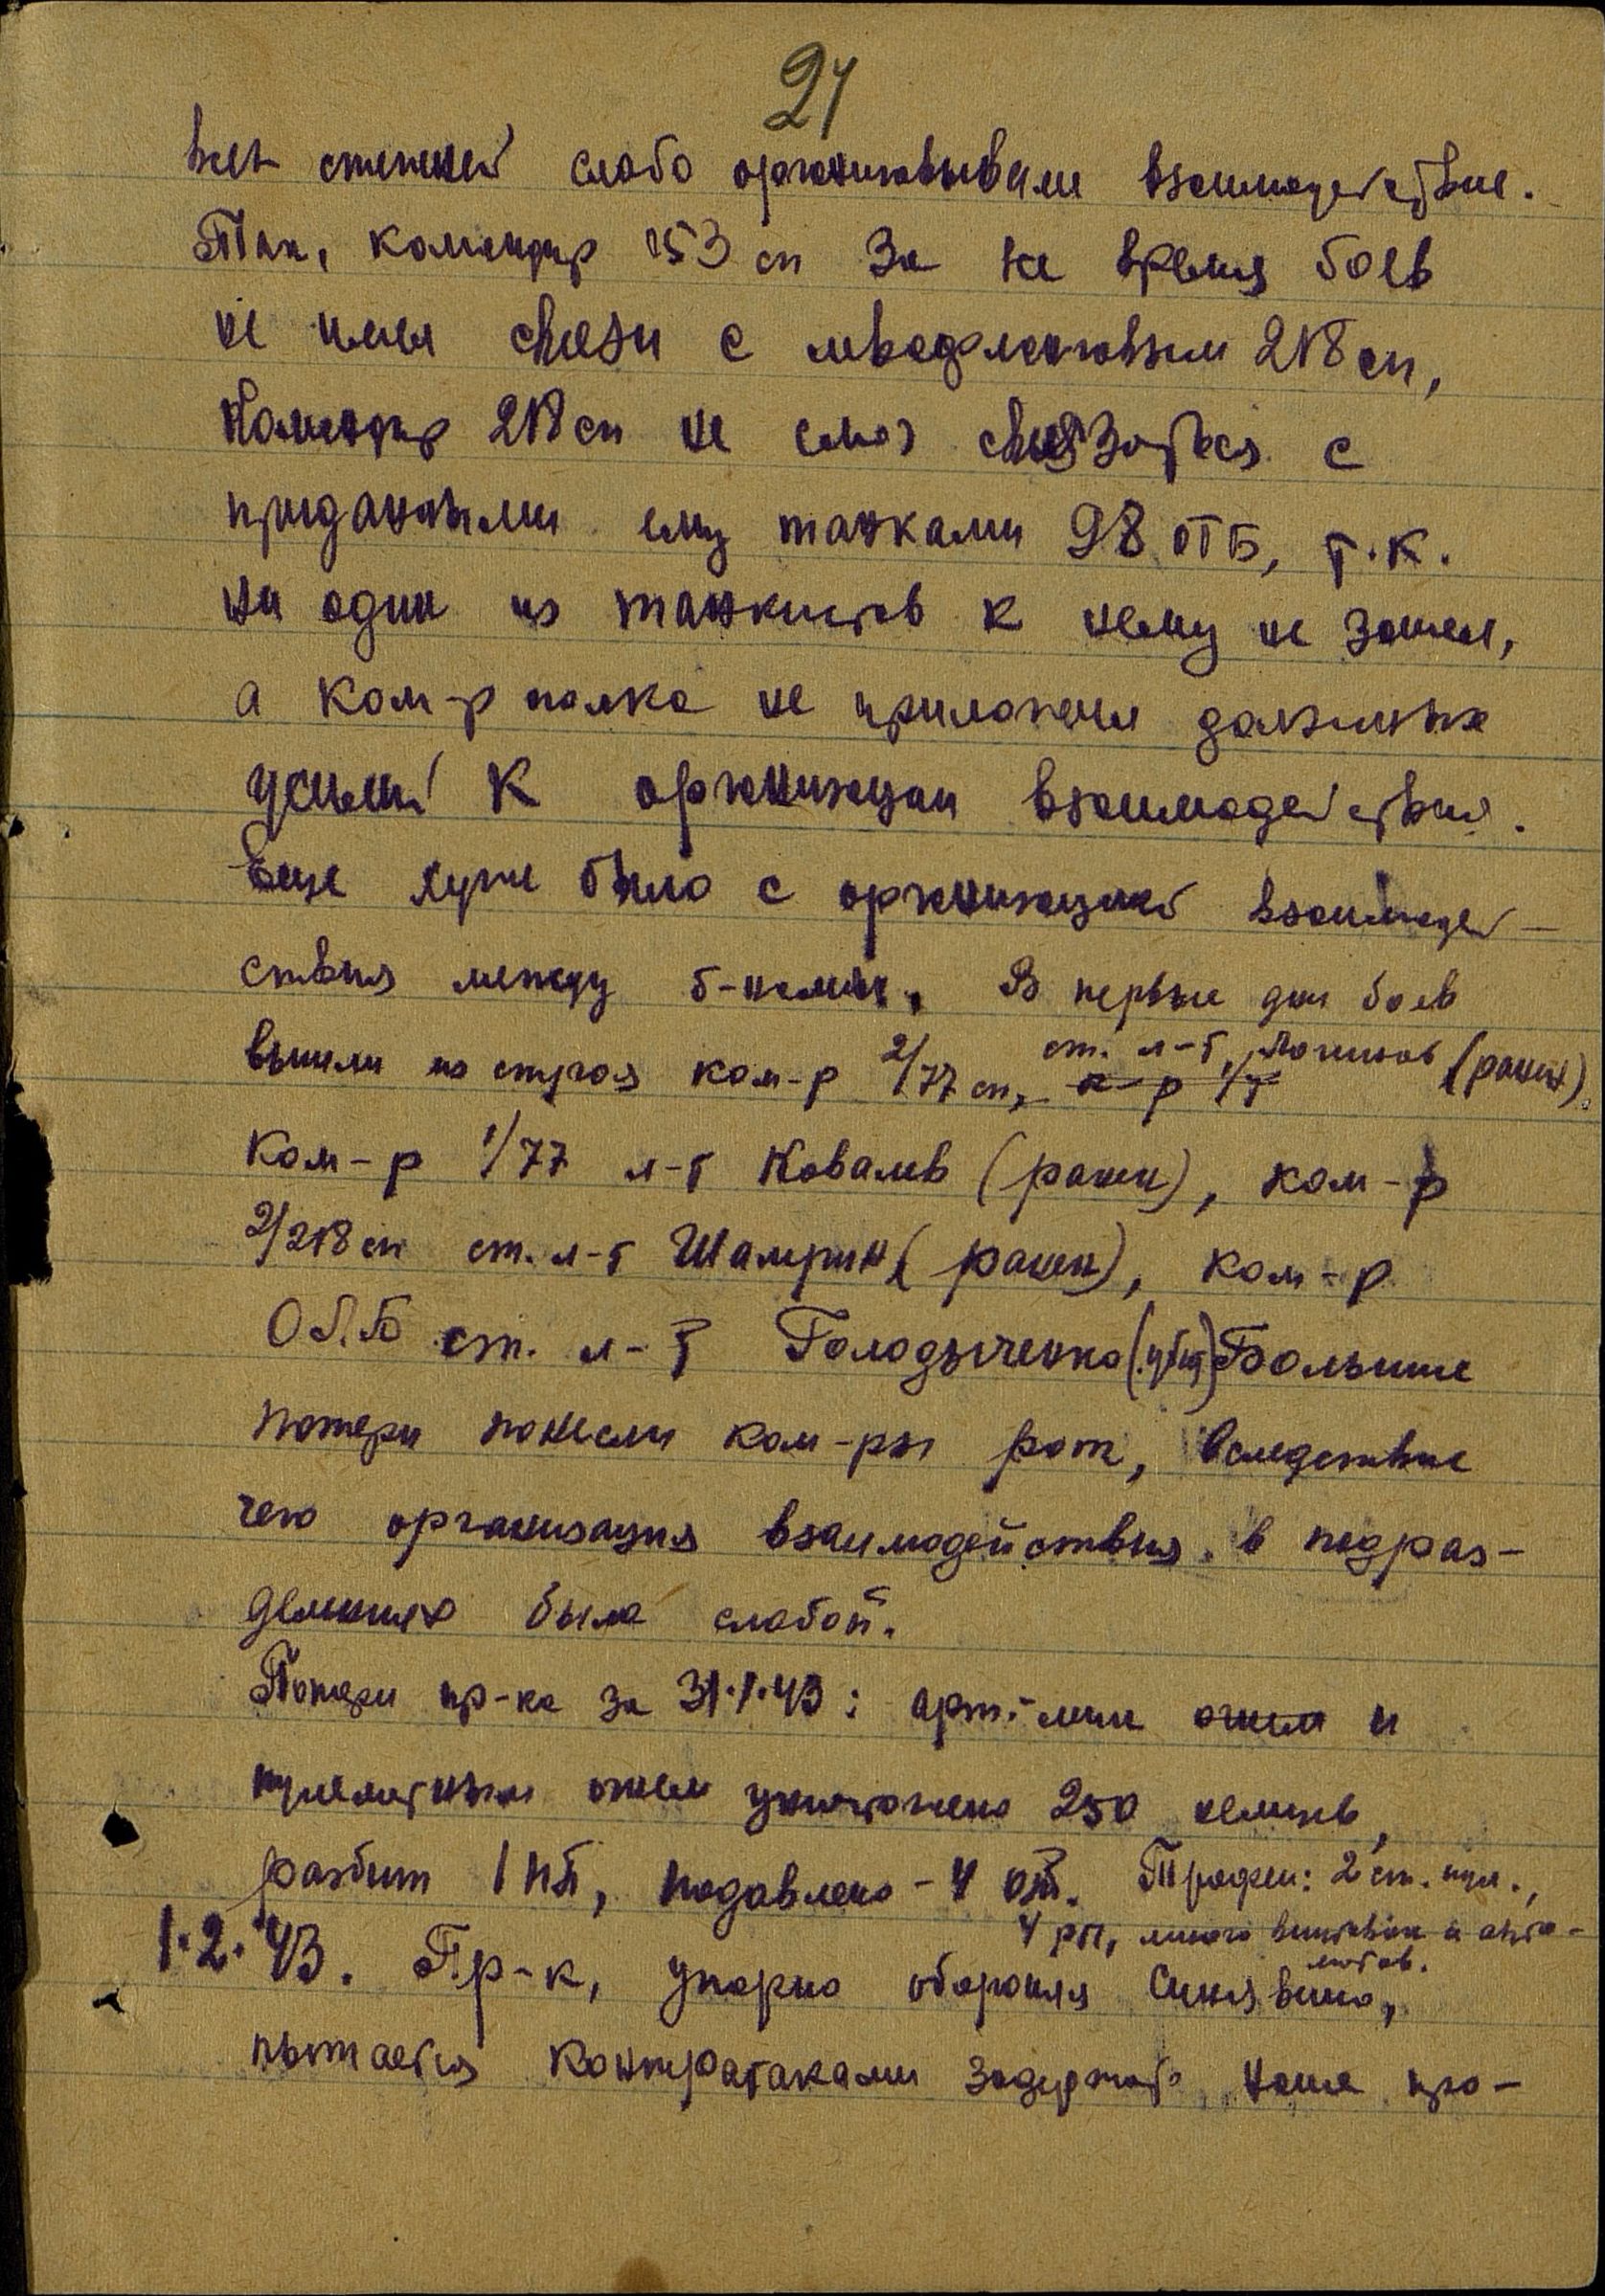 21
всех степеней слабо организовывали взаимодействие.
Так, командир 153 сп за все время боев
не имел связи с левофланговым 218 сп,
командир 218 сп не смог связаться с
приданными ему танками 98 ОТБ, т.к.
ни один из танкистов к нему не зашел,
а ком-р полка не приложил должных
усилий к организации взаимодействия.
Еще хуже было с организацией взаимодей-
ствия между б-нами. В первые дни боев
вышли из строя ком-р 2/77 сп, ст. л-т (ранен),
ком-р 1/77 л-т Ковалев (ранен), ком-р
2/218 сп ст. л-т Шамрин (ранен), ком-р
ОЛБ ст. л-т Голодыченко (убит) Большие
потери понесли ком-ры рот, вследствие
чего организация взаимодействия в подраз-
делениях была слабой.
Потери пр-ка за 31.1.43: арт. мин огнем и
пулеметным огнем уничтожено 250 немцев,
разбит 1 НП, подавлено - 4 от. Трофеи: 2 ст. пул.,
4 рп, много винтовок и авто-
матов.
1.2.43. Пр-к, упорно обороняя Синявино,
пытается контратаками задержать наше про-